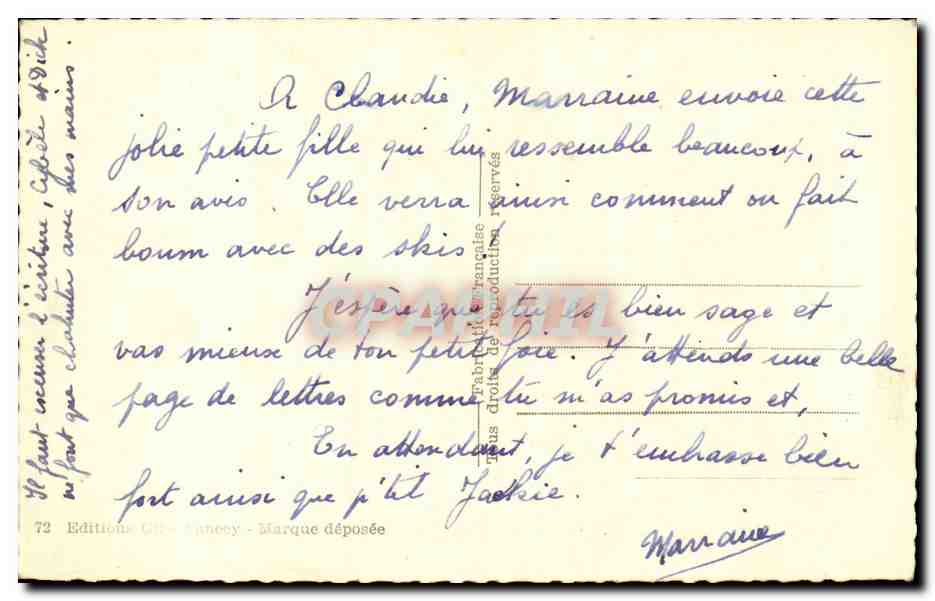 A Claudie, Marraine envoie cette
jolie petite fille qui lui ressemble beaucoup, à
son avis. Elle verra ainsi comment on fait
boum avec des skis !
J'espère que tu es bien sage et
vas mieux de ton petit foie. J'attends une belle
page de lettres comme tu m'as promis et,
En attendant, je t'embrasse bien
fort ainsi que p'tit Jackie.
Marraine
Il faut excuser l'écriture, Cybèle et Dick
ne font que chahuter avec mes mains.
Fabrication Française
Tous droits de reproduction réservés
72 Editions - Annecy - Marque déposée
CPAPHIL